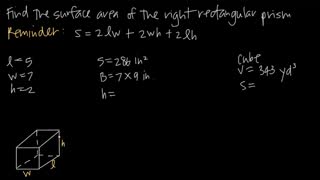 Find the surface area of the right rectangular prism
Reminder: S = 2lw + 2wh + 2lh
l = 5
w = 7
h = 2
S = 286 in²
B = 7 x 9 in
h =
cube
V = 343 yd³
S =
h
l
w